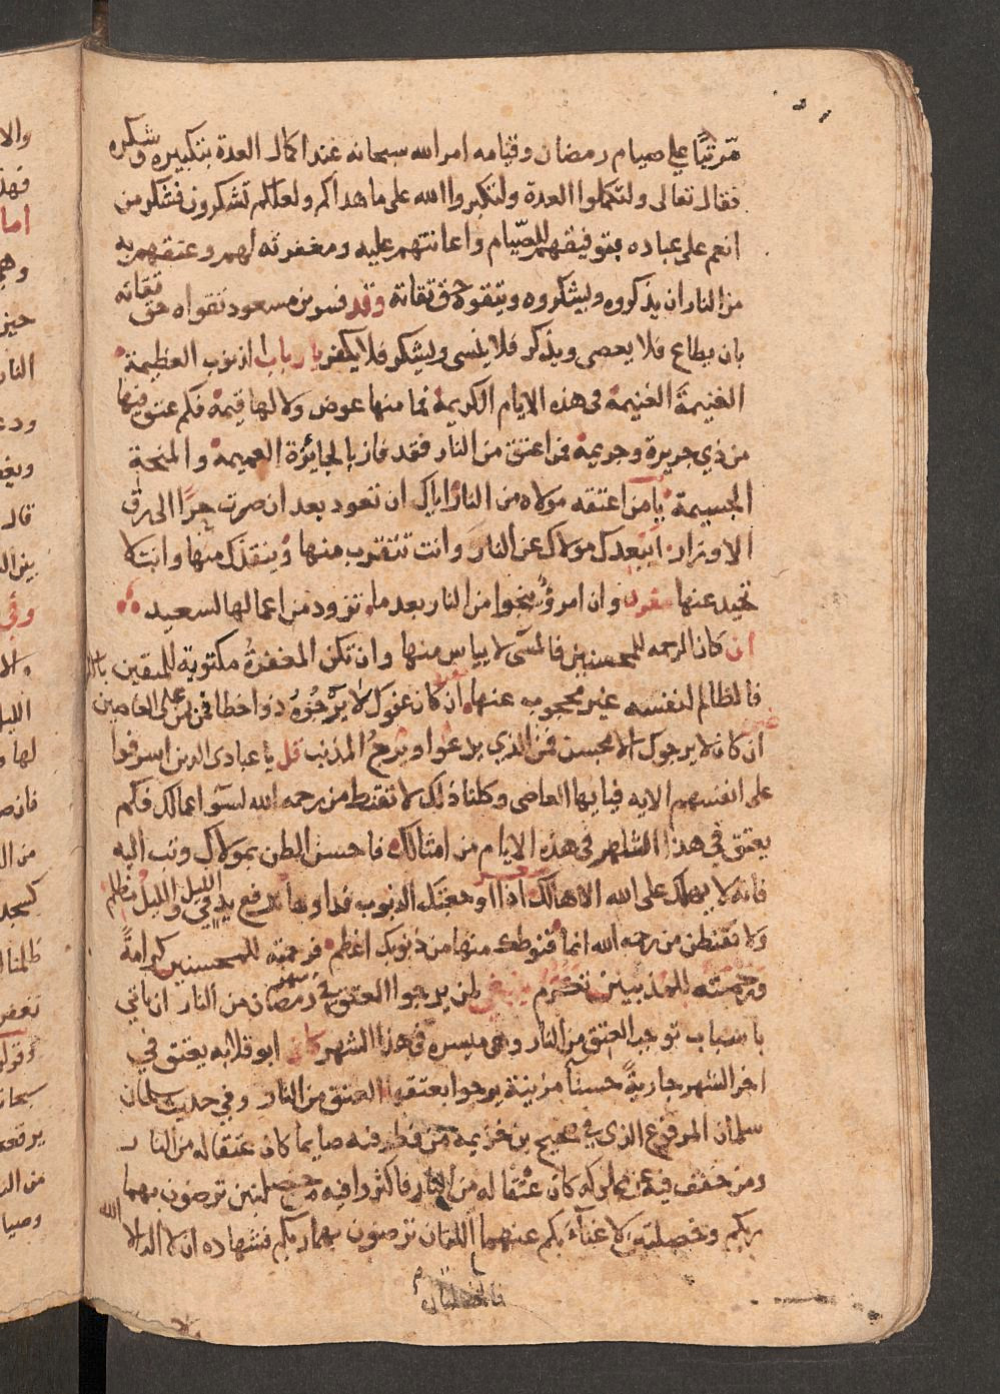 مترتبًا علي صيام رمضان وقيامه امر الله سبحانه عند اكمال العدة بتكبيره وشكره
فقال تعالى ولتكملوا العدة ولتكبروا الله على ما هداكم ولعلكم تشكرون فشكر من
انعم على عباده بتوفيقهم للصيام واعانتهم عليه ومغفرته لهم وعتقهم به
من النار ان يذكروه ويشكروه ويتقوه حق تقاته وقد فسر بن مسعود تقواه حق تقاته
بان يطاع فلا يعصى ويذكر فلا ينسى ويشكر فلا يكفر يا ارباب الذنوب العظيمة
الغنيمة الغنيمة فى هذه الايام الكريمة فما منها عوض ولا لها قيمة فكم عتق فيها
من ذي جريرة وجريمة فمن اعتق من النار فقد فاز بالجائزة العميمة والمنحة
الجسيمة يا من اعتقه مولاه من النار اياك ان تعود بعد ان صرت حرًا الى رق
الاوزار ايبعدك مولاك عن النار وانت تتقرب منها وينقذك منها وانت لا
تحيد عنها وان امرؤ ينجوا من النار بعد ما تزود من اعمالها لسعيد
ان كان الرحمه للمحسنين فالمسى لا يياس منها وان تكن المغفرة مكتوبة للمتقين
فالظالم لنفسه غير محجوب عنها ان كان عفوك لا يرجوه ذو اخطا فمن على العاصين
ان كان لا يرجوك الا محسن فمن الذي يدعوا ويرجو المذنب قل يا عبادى الدين اسرفوا
على انفسهم الايه فيا ايها العاصى وكلنا ذلك لا تقنط من رحمه الله لسوء اعمالك فكم
يعتق في هذا الشهر فى هذه الايام من امثالك فاحسن الظن بمولاك وتب اليه
فانه لا يهلك على الله الا هالك اذا اوجعتك الذنوب فداوها برفع يد في الليل والليل مظلم
ولا تقنطن من رحمه الله انما قنوطك منها من ذنوبك اعظم فرحمته للمحسنين كرامةً
ورحمته للمذنبين تكرم ينبغي لمن يرجوا العتق في شهر رمضان من النار ان ياتي
باسباب توجب العتق من النار وهى ميسره فى هذا الشهر كان ابو قلابه يعتق في
اخر الشهر جاريةً حسنا مزينة يرجوا بعتقها العتق من النار وفي حديث سلمان
سلمان المرفوع الذي في صحيح بن خزيمه من فطر فيه صايما كان عتقا له من النار
ومن خفف فيه عن مملوكه كان عتقا له من النار فاكثروا فيه من خصلتين ترضون بهما
ربكم وخصلتين لا غناء بكم عنهما اللتان ترضون بهما ربكم فشهادة ان لا اله الا الله
فالخصلتان